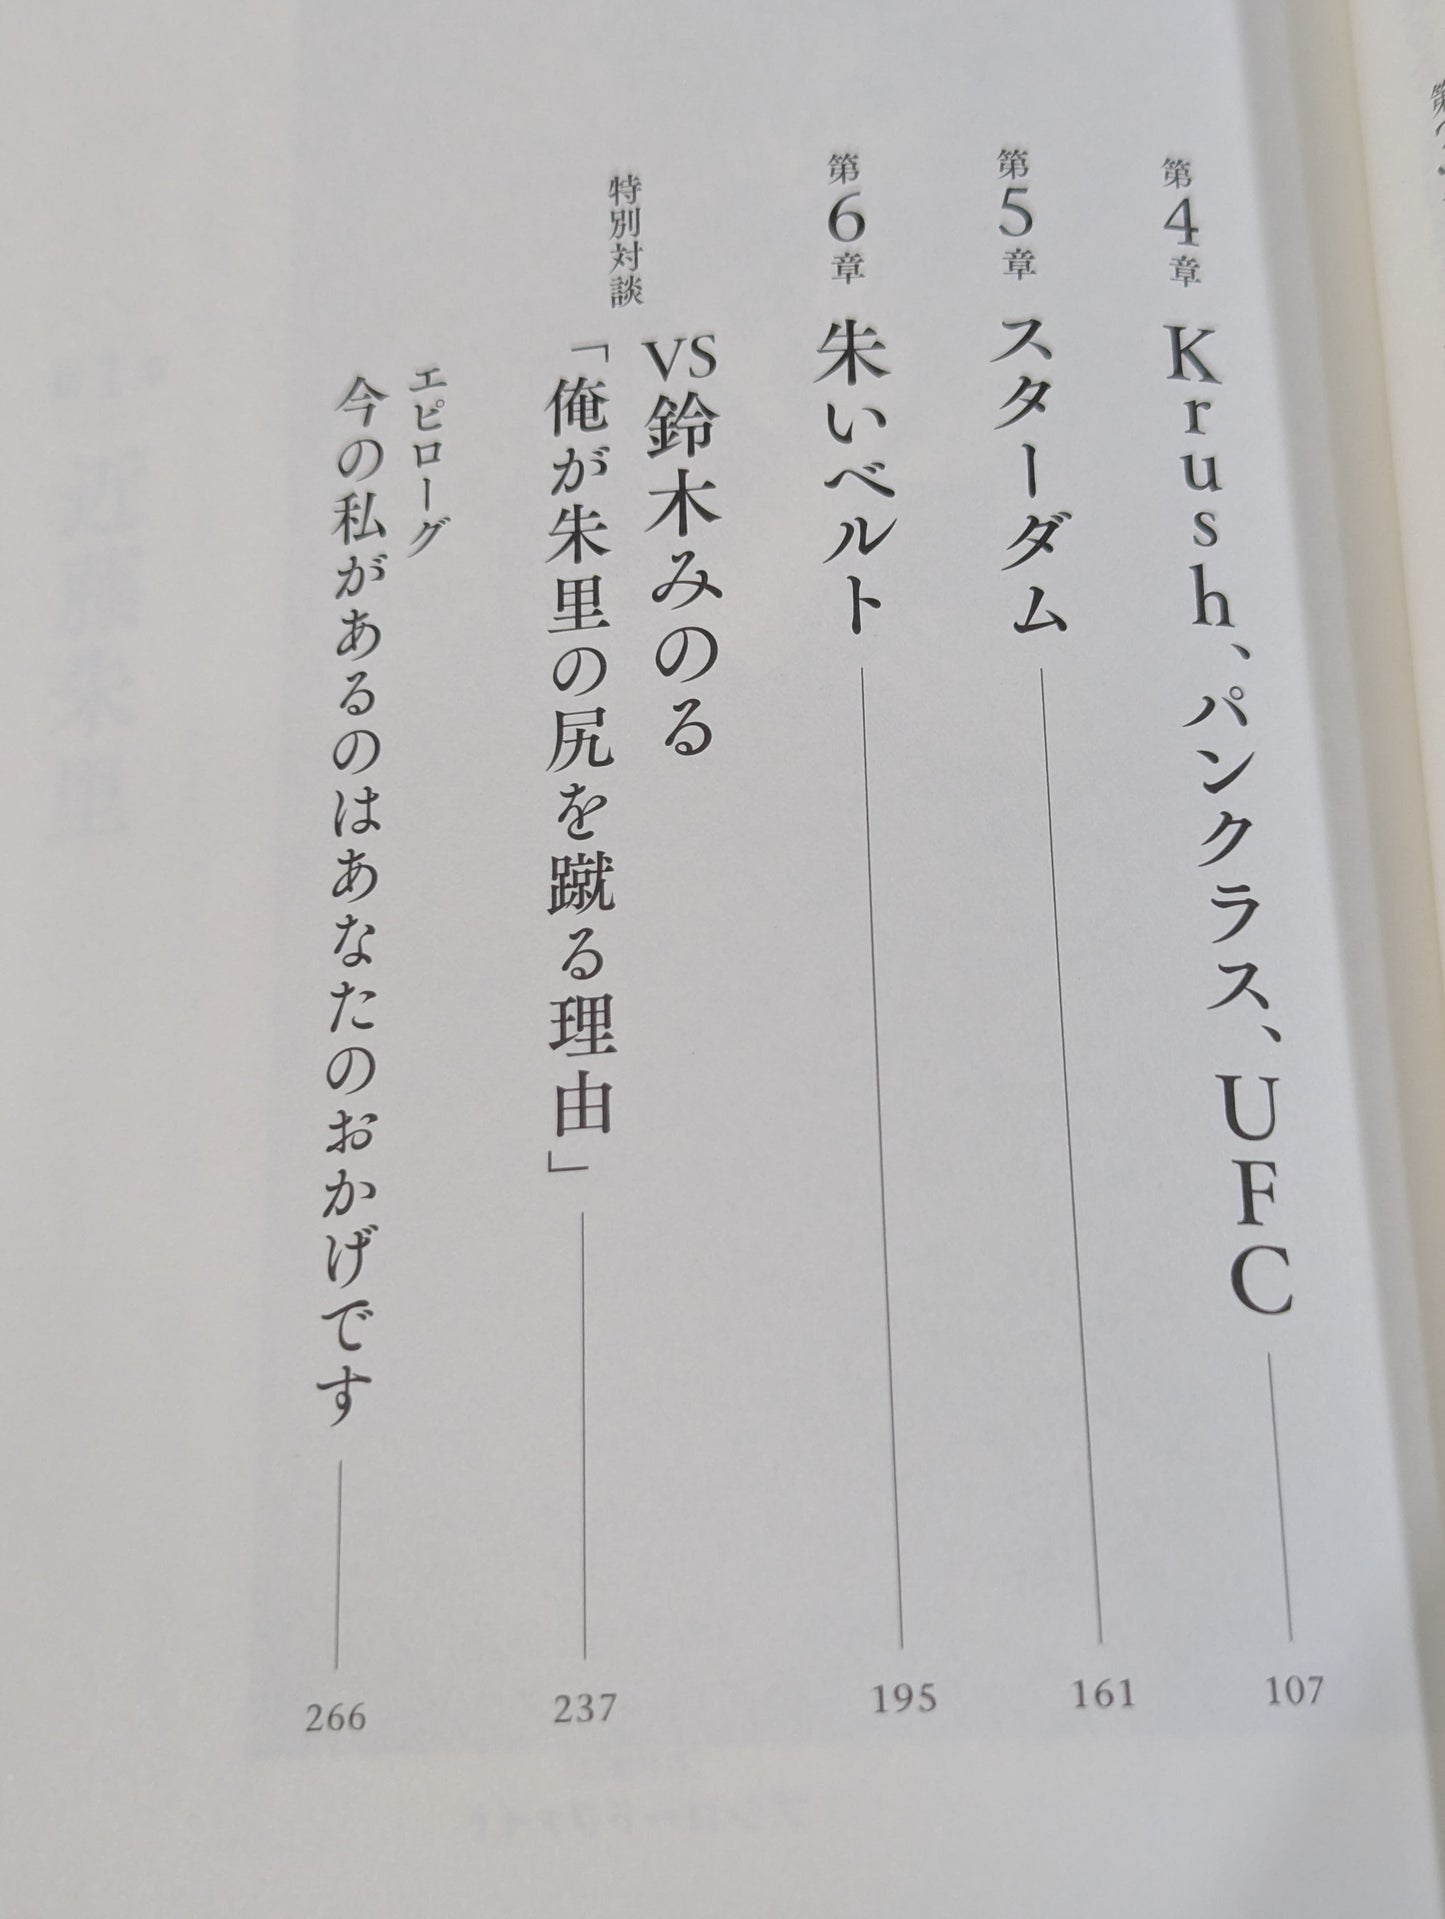 第4章 Krush、パンクラス、UFC 107
第5章 スターダム 161
第6章 朱いベルト 195
特別対談
VS鈴木みのる
「俺が朱里の尻を蹴る理由」 237
エピローグ
今の私があるのはあなたのおかげです 266